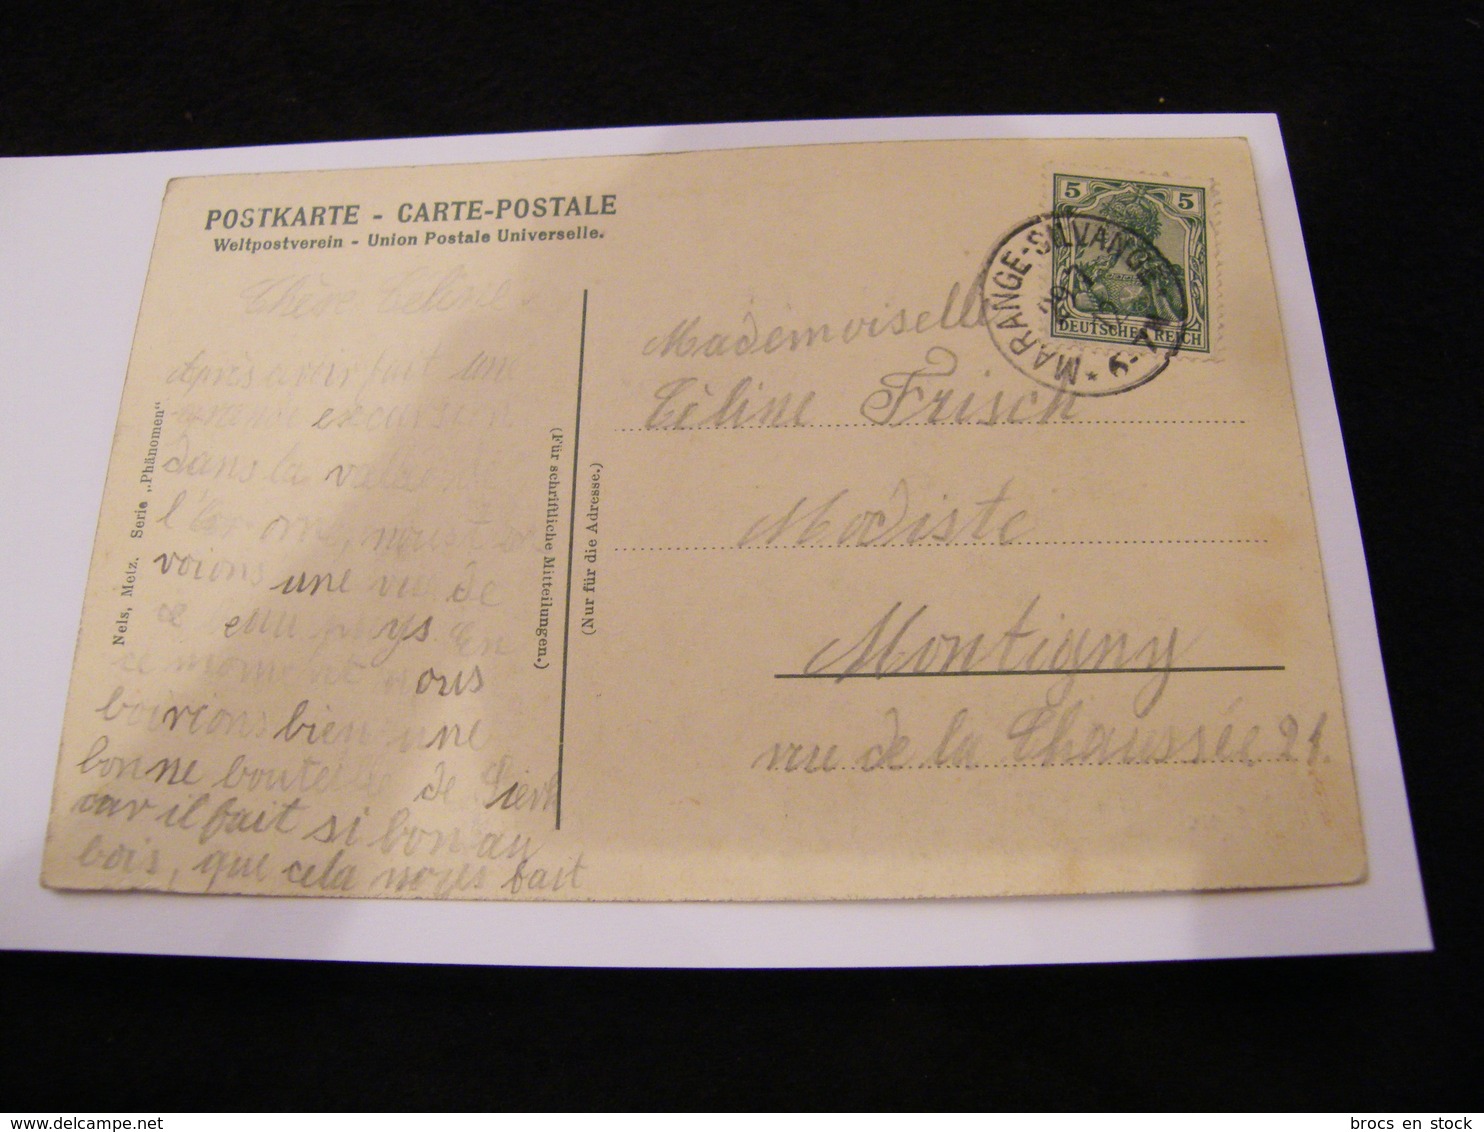 POSTKARTE - CARTE-POSTALE
Weltpostverein - Union Postale Universelle.
Chère Céline
Après avoir fait une
grande excursion
dans la vallée de
l'Orne, nous
voions une vue de
ce beau pays. En
ce moment nous
boirions bien une
bonne bouteille de
car il fait si bon au
bois, que cela nous fait
Nels, Metz. Serie „Phänomen“
(Für schriftliche Mitteilungen.)
(Nur für die Adresse.)
5 5
DEUTSCHES REICH
MARANGE-SILVANGE
Mademoiselle
Céline Frisch
Modiste
Montigny
rue de la Chaussée 21.
brocs en stock